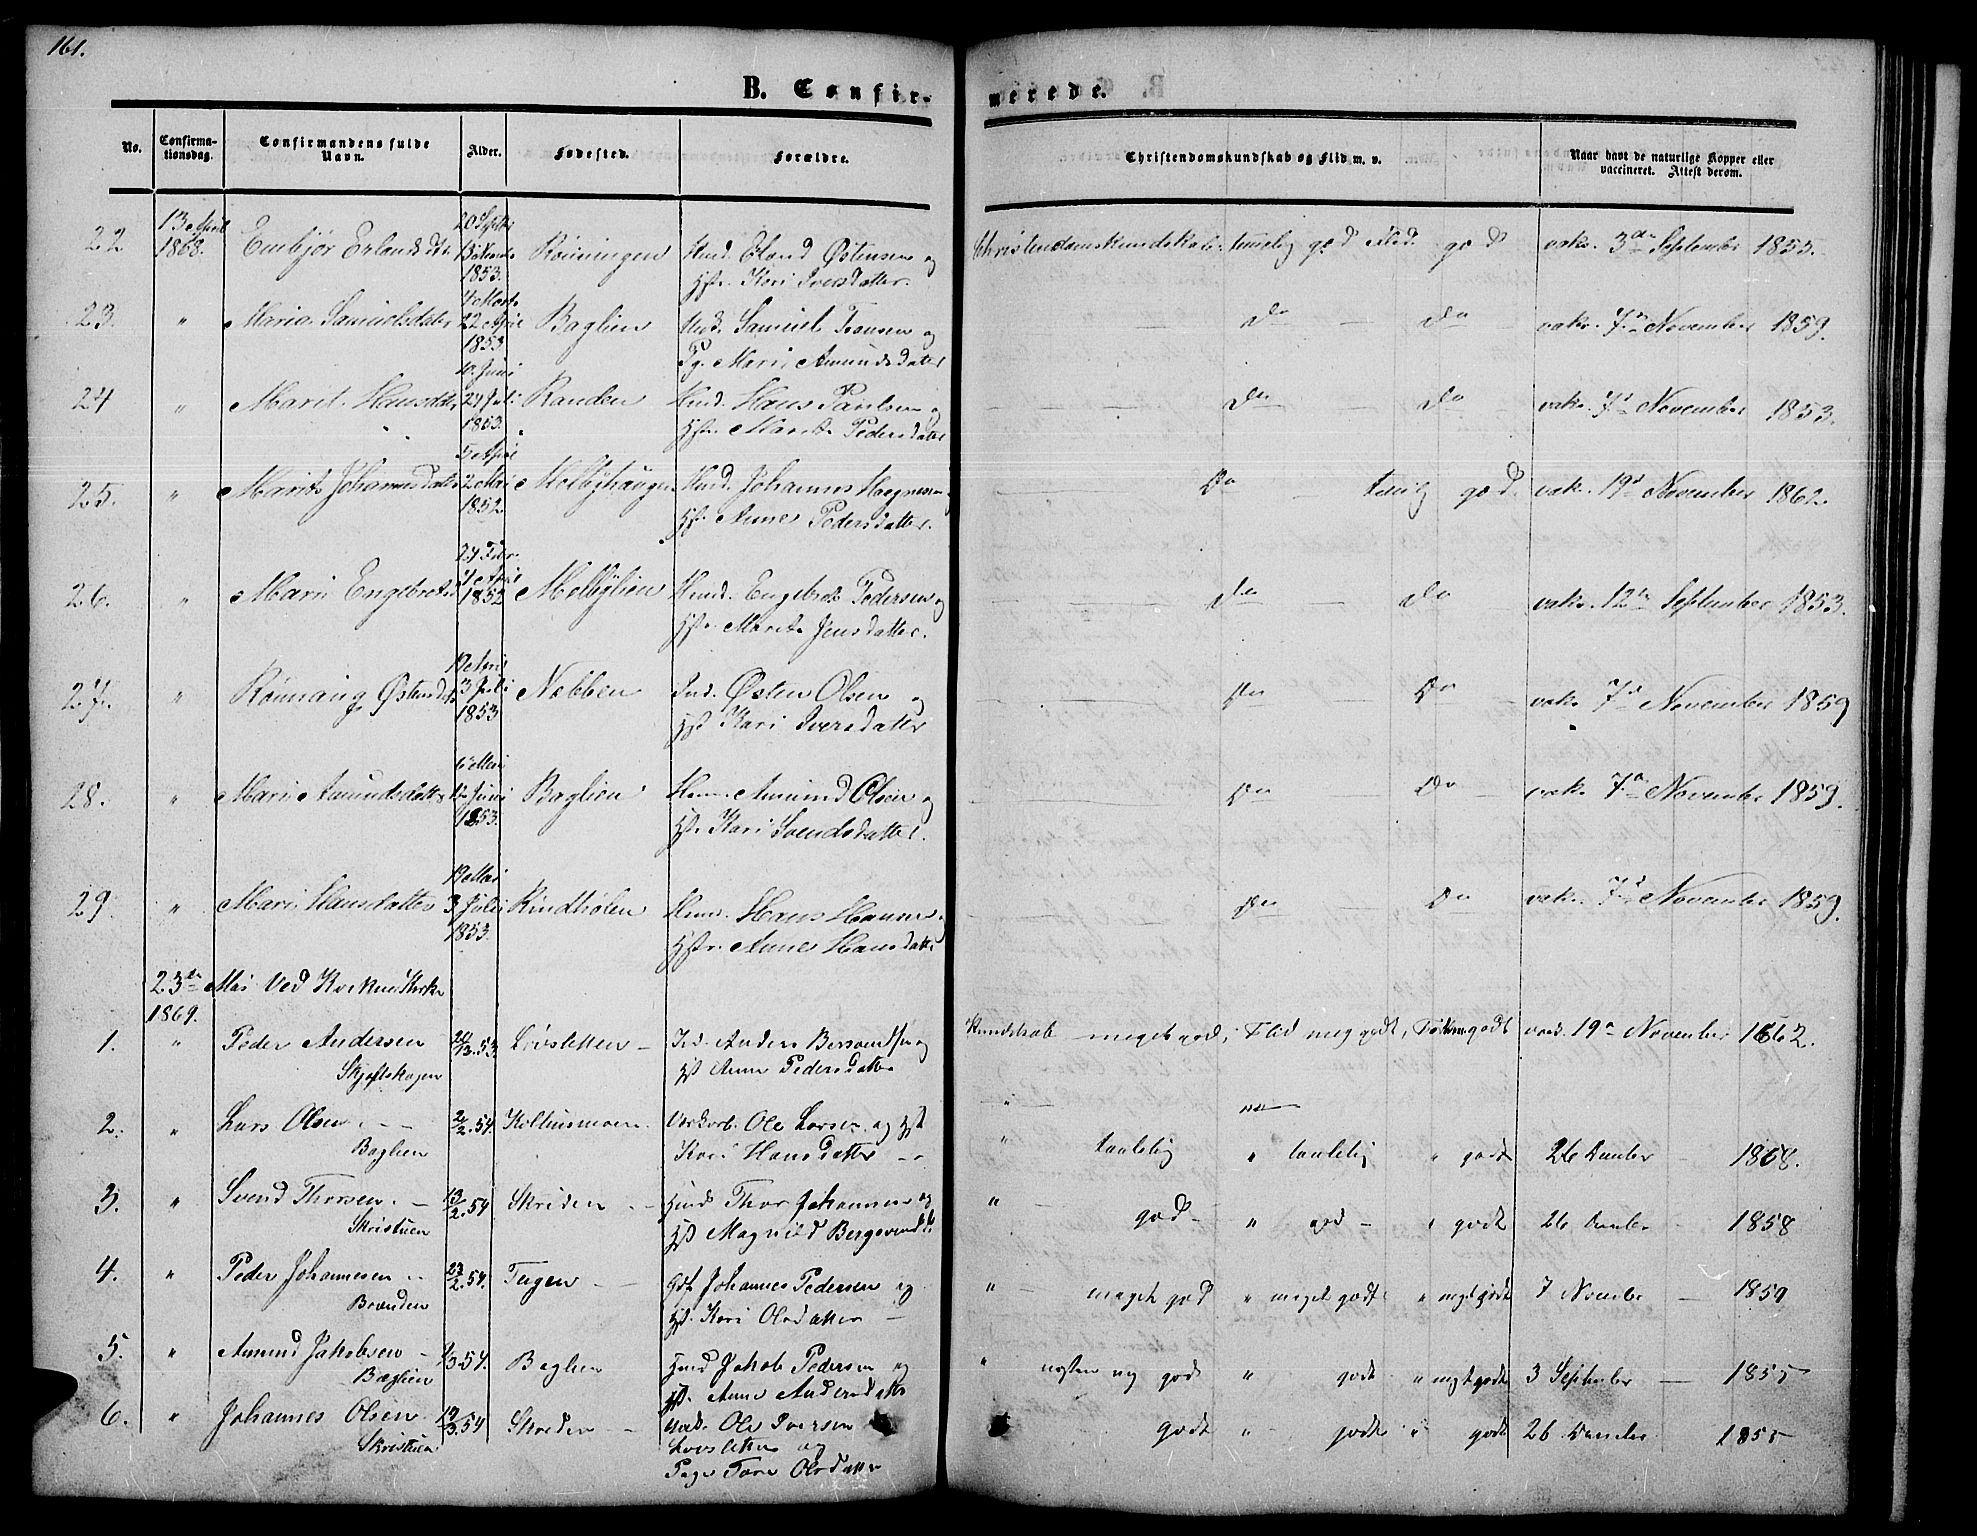 161.
B. Confir-
merede.
No.
Confirma-
tionsdag.
Confirmandens fulde
Navn.
Alder.
Fødested.
Forældre.
Christendomskundskab og Flid m. v.
Naar havt de naturlige Kopper eller
vaccineret. Attest derom.
22
13 April
1868.
Embjør Erlandsdtr
20 Septbr
1853.
Rønningen
Hmd. Erland Østensen og
Hstr. Kari Iversdatter.
Christendomskundskab: temlig god Flid. god
vakc. 3die September 1853.
23.
"
Maria Samuelsdater
4 Marts
22 April
1853
Baglien
Hmd. Samuel Hansen og
Pg. Mari Amundsdatter
Do — Do
vakc. 7de November 1859.
24
"
Marit Hansdatter
10 Juni
24 Juli
1853.
Randen
Hmd. Hans Paulsen og
Hstr. Marit Pedersdatter
Do — Do
vakc. 7d November 1853.
25.
"
Marit Johannesdatter
5 April
2 Mai
1852
Melbyhaugen
Hmd. Johannes Magnesen og
Hstr. Anne Pedersdatter.
Do — temlig god.
vakc. 19d November 1862.
26.
"
Mari Engebretsd
24 Febr.
4 April
1852
Melbylien
Hmd. Engebret Pedersen og
Hstr. Marit Jensdatter.
Do — Do
vakc. 12te September 1853.
27.
"
Rønnaug Østensdatter
19 April
3 Juli
1853
Nebben
Ind. Østen Olsen og
Hst. Kari Iversdatter
Do Do
vakc. 7d November 1859
28.
"
Mari Amundsdatter
6 Mai
12 Juni
1853.
Baglien
Hmd. Amund Olsen og
Hstr. Kari Svendsdatter.
Do Do
vakc. 7d November 1859.
29.
"
Mari Hansdatter
19 Mai
3 Juli
1853.
Rindhølen
Hmd. Hans Hansen og
Hstr. Anne Hansdatter
Do Do
vakc. 7d November 1859.
23de Mai Ved Kvikne Kirke
1869.
1.
"
Peder Andersen
Skjeftskogen
53
Lovsletten —
Anders Bersvendsen og
Hst Anne Pedersdatter
Kundskab — meget god, Flid meg godt, godt
vac. 19d November 1862.
2.
"
Lars Olsen. — —
Baglien
2/2.54.
Koltusmoen.
Ole Larsen og Hst
Kari Hansdatter — -
" taalelig " taalelig " godt
26 1868.
3.
"
Svend Thorsen. —
Skristuen
13/2.54
Skriden — -
Hmd Thor Johannesen og
Hst Magnild Bergsvendsdtr
" god — " god — " godt
26 — 1858
4.
"
Peder Johannesen
Brænden
23/2.54.
Tugen — —
Johannes Pedersen og
Hst. Kari Olsdatter —
" meget god " meget godt " meget godt
7 November — 1859
5.
"
Amund Jakobsen —
Baglien
54.
Baglien
Hmd Jakob Pedersen og
Hst. Anne Andersdatter
" næsten mg godt " godt " mgt godt
3 September — 1855
6.
"
Johannes Olsen.
Skristuen
54
Skriden — —
Ole Iversen
Lovsletten og
Pige Tore Olsdatter
godt " godt " godt
26 1855